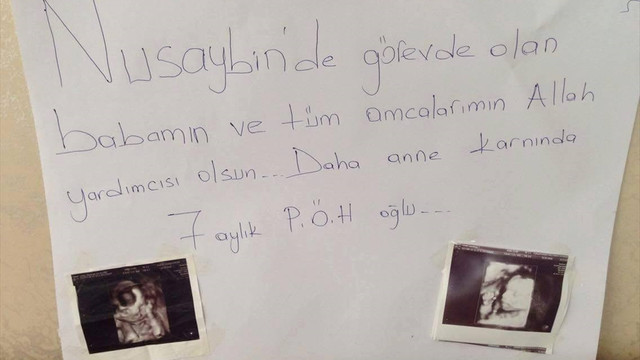 Nusaybin'de görevde olan
babamın ve tüm amcalarımın Allah
yardımcısı olsun... Daha anne karnında
7 aylık P.Ö.H oğlu....